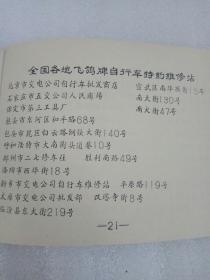 全国各地飞鸽牌自行车特约维修站
北京市交电公司自行车批发商店 宣武区南华康街15号
石家庄市五交公司人民商场 南大街130号
保定市第三工具厂 南大街47号
张台市东河区和平路68号
包头市昆区白云路钢铁大街140号
呼和浩特市大南街头道巷10号
郑州市二七修车社 胜利南路49号
洛阳市西华街18号
新乡市交电公司自行车维修站 平原路119号
太原市交电公司批发部 双塔寺街8号
临汾县东大街219号
—21—